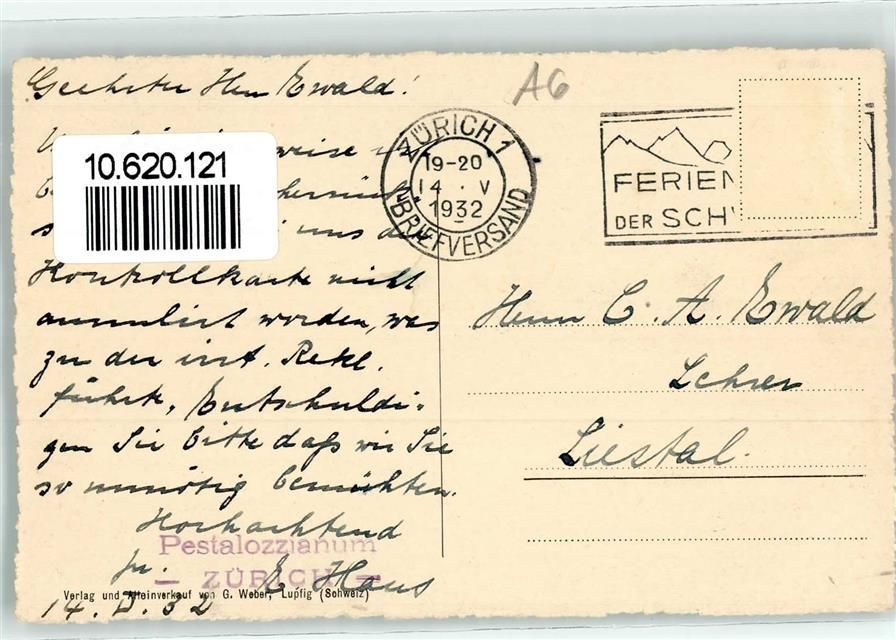 Geehrter Herr Ewald!
weise
10.620.121
uns
Kontrollkarte nicht
annuliert worden, was
zu der irrt. Rekl.
führte, Entschuldi-
gen Sie bitte daß wir Sie
so unnötig bemühten.
Hochachtend
Pestalozzianum
ZÜRICH
E. Haus
Verlag und Alleinverkauf von G. Weber, Lupfig (Schweiz)
14. V. 32
A6
ZÜRICH 1
19-20
14 · V
1932
BRIEFVERSAND
FERIEN
DER SCHW
Herrn C. A. Ewald
Lehrer
Liestal.